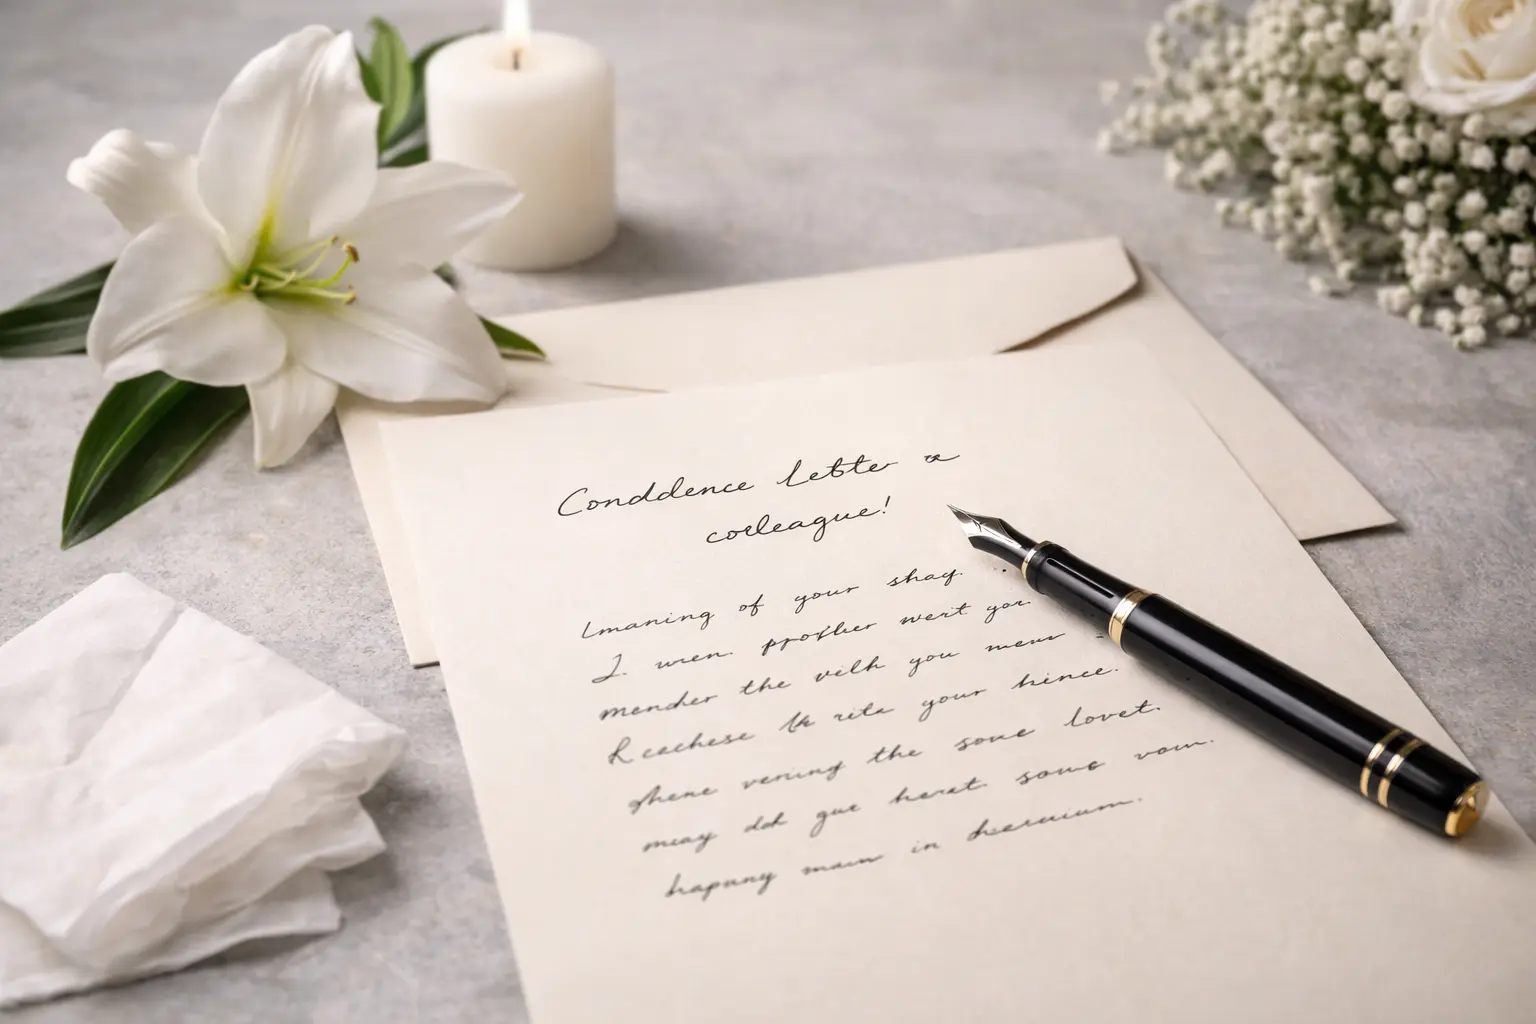 Conddence letter a
corleague!
Imaning of your shay.
I wren prosther wert you
mender the velh you menr
Rcachese rita your hince.
ghene vening the sove lovet.
may ddh gue herat sove vom.
hapuny mawn in deruium.